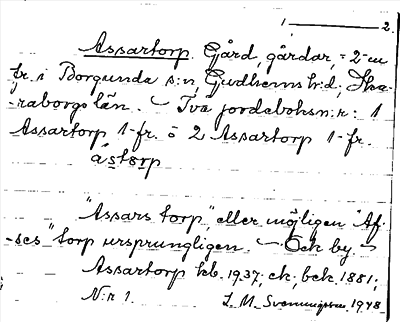 1 ——— 2.
Assartorp. Gård, gårdar, = 2 =
fr. i Borgunda s:n, Gudhems h:d, Ska-
-raborgs län. — Två jordeboksn:r: 1
Assartorp 1-fr. o 2 Assartorp 1-fr.
åstorp
"Assars torp", eller möjligen "Af-
-ses" torp ursprungligen. — Ock by. —
Assartorp kb. 1937, ek. bck. 1881,
N:r 1. L. M. Svenungsson 1948